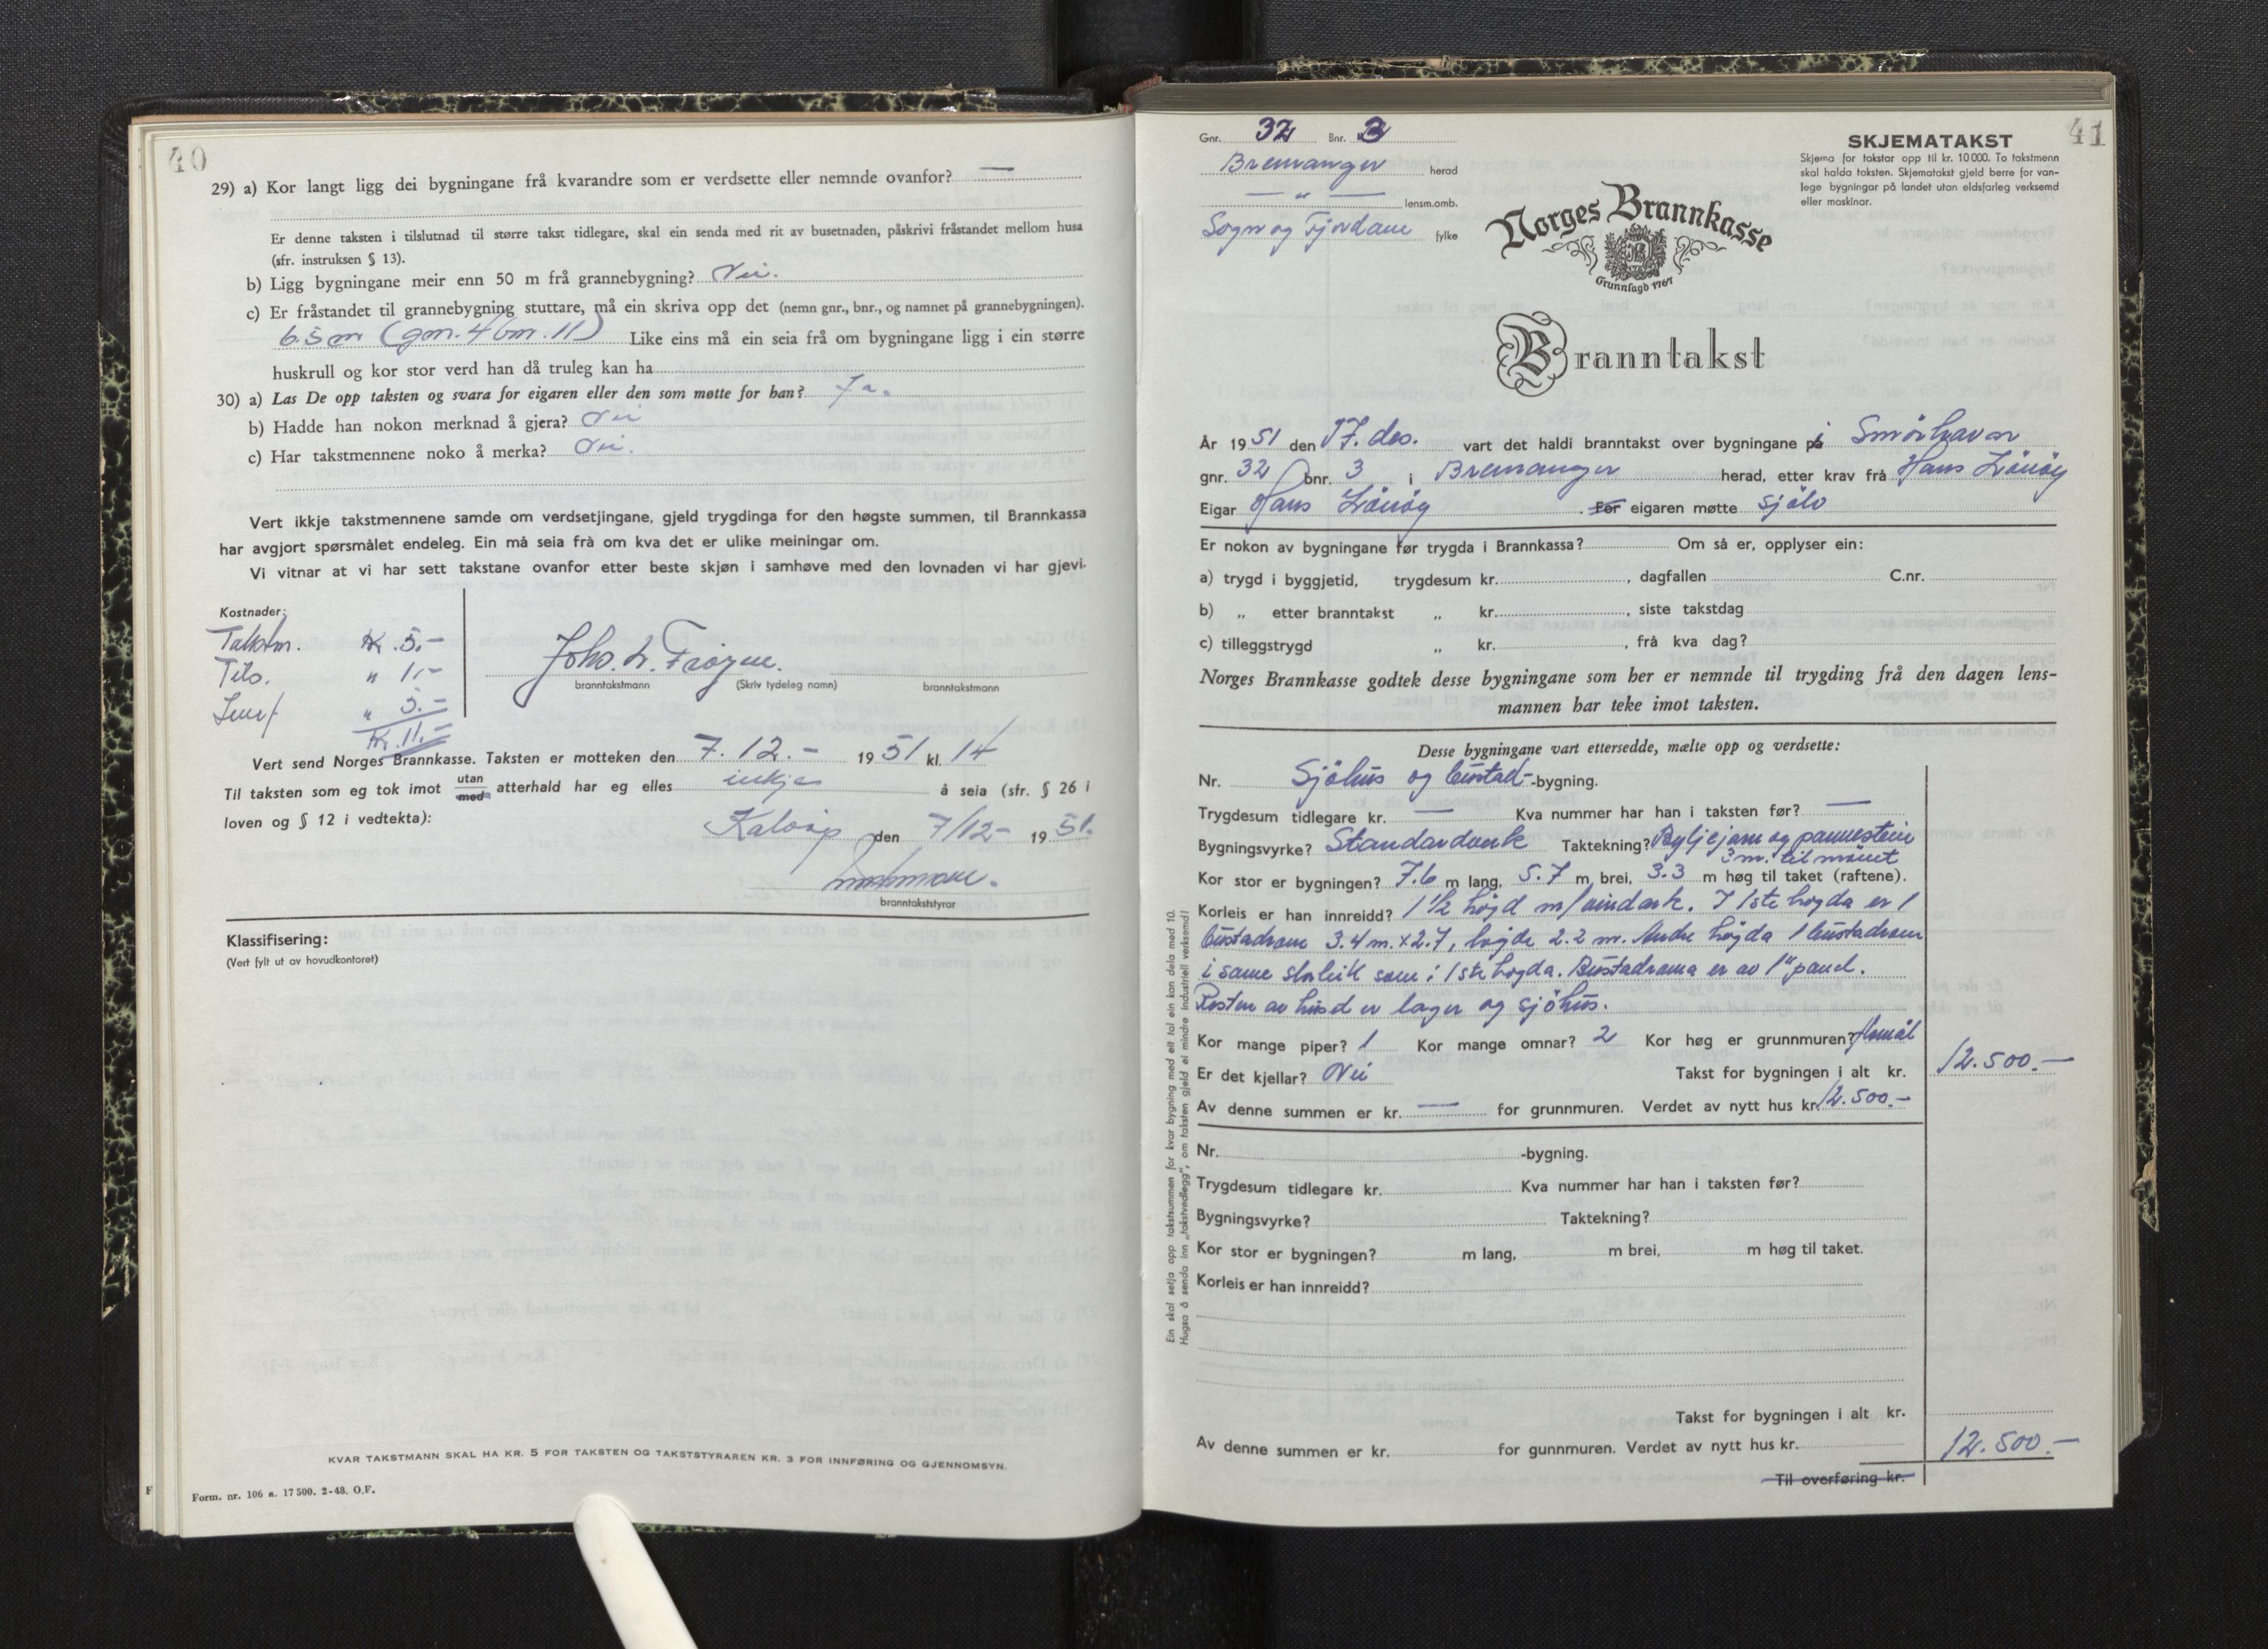 40
29) a) Kor langt ligg dei bygningane frå kvarandre som er verdsette eller nemnde ovanfor? —
Er denne taksten i tilslutnad til større takst tidlegare, skal ein senda med rit av busetnaden, påskrivi fråstandet mellom husa
(sfr. instruksen § 13).
b) Ligg bygningane meir enn 50 m frå grannebygning? Nei.
c) Er fråstandet til grannebygning stuttare, må ein skriva opp det (nemn gnr., bnr., og namnet på grannebygningen).
6.5 m (gnr. 4 bnr. 11) Like eins må ein seia frå om bygningane ligg i ein større
huskrull og kor stor verd han då truleg kan ha
30) a) Las De opp taksten og svara for eigaren eller den som møtte for han? Ja.
b) Hadde han nokon merknad å gjera? Nei
c) Har takstmennene noko å merka? Nei.
Vert ikkje takstmennene samde om verdsetjingane, gjeld trygdinga for den høgste summen, til Brannkassa
har avgjort spørsmålet endeleg. Ein må seia frå om kva det er ulike meiningar om.
Vi vitnar at vi har sett takstane ovanfor etter beste skjøn i samhøve med den lovnaden vi har gjevi.
Kostnader:
Takstm. Kr. 5.-
Tils. " 1.-
" 5.-
Kr. 11.-
Johs. L. Frøyen.
branntakstmann (Skriv tydeleg namn) branntakstmann
Vert send Norges Brannkasse. Taksten er motteken den 7. 12. - 1951 kl. 14
Til taksten som eg tok imot utan/med atterhald har eg elles inkje å seia (sfr. § 26 i
loven og § 12 i vedtekta):
Kalvåg den 7/12- 1951.
branntakststyrar
Klassifisering:
(Vert fylt ut av hovudkontoret)
KVAR TAKSTMANN SKAL HA KR. 5 FOR TAKSTEN OG TAKSTSTYRAREN KR. 3 FOR INNFØRING OG GJENNOMSYN.
F
Form. nr. 106 n. 17 500. 2-48. O.F.
41
Gnr. 32 Bnr. 3
Bremanger herad
— " — lensm.omb.
Sogn og Fjordane fylke
SKJEMATAKST
Skjema for takstar opp til kr. 10 000. To takstmenn
skal halda taksten. Skjematakst gjeld berre for van-
lege bygningar på landet utan eldsfarleg verksemd
eller maskinar.
Norges Brannkasse
Grunnlagd 1767
Branntakst
År 1951 den 17. des. vart det haldi branntakst over bygningane på i Smörhavn
gnr. 32 bnr. 3 i Bremanger herad, etter krav frå Hans Lånöy
Eigar Hans Lånöy. For eigaren møtte sjölv
Er nokon av bygningane før trygda i Brannkassa? Om så er, opplyser ein:
a) trygd i byggjetid, trygdesum kr. , dagfallen C.nr.
b) „ etter branntakst „ kr. , siste takstdag
c) tilleggstrygd „ kr. , frå kva dag?
Norges Brannkasse godtek desse bygningane som her er nemnde til trygding frå den dagen lens-
mannen har teke imot taksten.
Desse bygningane vart ettersedde, mælte opp og verdsette:
Nr. Sjöhus og bustad-bygning.
Trygdesum tidlegare kr. — Kva nummer har han i taksten før? —
Bygningsvyrke? Standardverk Taktekning? Bylgjejarn og pannestein
3 m. til mönet
Kor stor er bygningen? 7.6 m lang, 5.7 m brei, 3.3 m høg til taket (raftene).
Korleis er han innreidd? 1 1/2 högd m/ I 1ste högda er 1
bustadrom 3.4 m. x 2.7, högde 2.2 m. Andre högda 1 bustadrom
i same storleik som i 1ste högda. Bustadroma er av 1" panel.
Resten av huset er lager og sjöhus.
Kor mange piper? 1 Kor mange omnar? 2 Kor høg er grunnmuren?
Er det kjellar? Nei Takst for bygningen i alt kr. 12.500.—
Av denne summen er kr. — for grunnmuren. Verdet av nytt hus kr. 12.500.-
Nr. -bygning.
Trygdesum tidlegare kr. Kva nummer har han i taksten før?
Bygningsvyrke? Taktekning?
Kor stor er bygningen? m lang, m brei, m høg til taket.
Korleis er han innreidd?
Takst for bygningen i alt kr.
Av denne summen er kr. for gunnmuren. Verdet av nytt hus kr.
12.500.—
Til overføring kr.
Ein skal setja opp takstsummen for kvar bygning med eit tal ein kan dela med 10.
Hugsa å senda inn „takstvedlegg", om taksten gjeld ei mindre industriell verksemd!